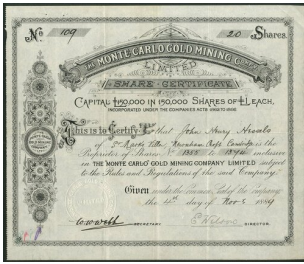 No 109 20 Shares.
THE MONTE CARLO GOLD MINING COMPY
LIMITED
SHARE CERTIFICATE
CAPITAL £150,000 IN 150,000 SHARES OF £1 EACH,
INCORPORATED UNDER THE COMPANIES ACTS 1862 TO 1886
This is to Certify that John Henry
St Villa, is the
Proprietor of Shares No to inclusive
in THE MONTE CARLO GOLD MINING COMPANY LIMITED subject
to the Rules and Regulations of the said Company.
Given under the Common Seal of the company
the day of Nov 1889
SECRETARY DIRECTOR.